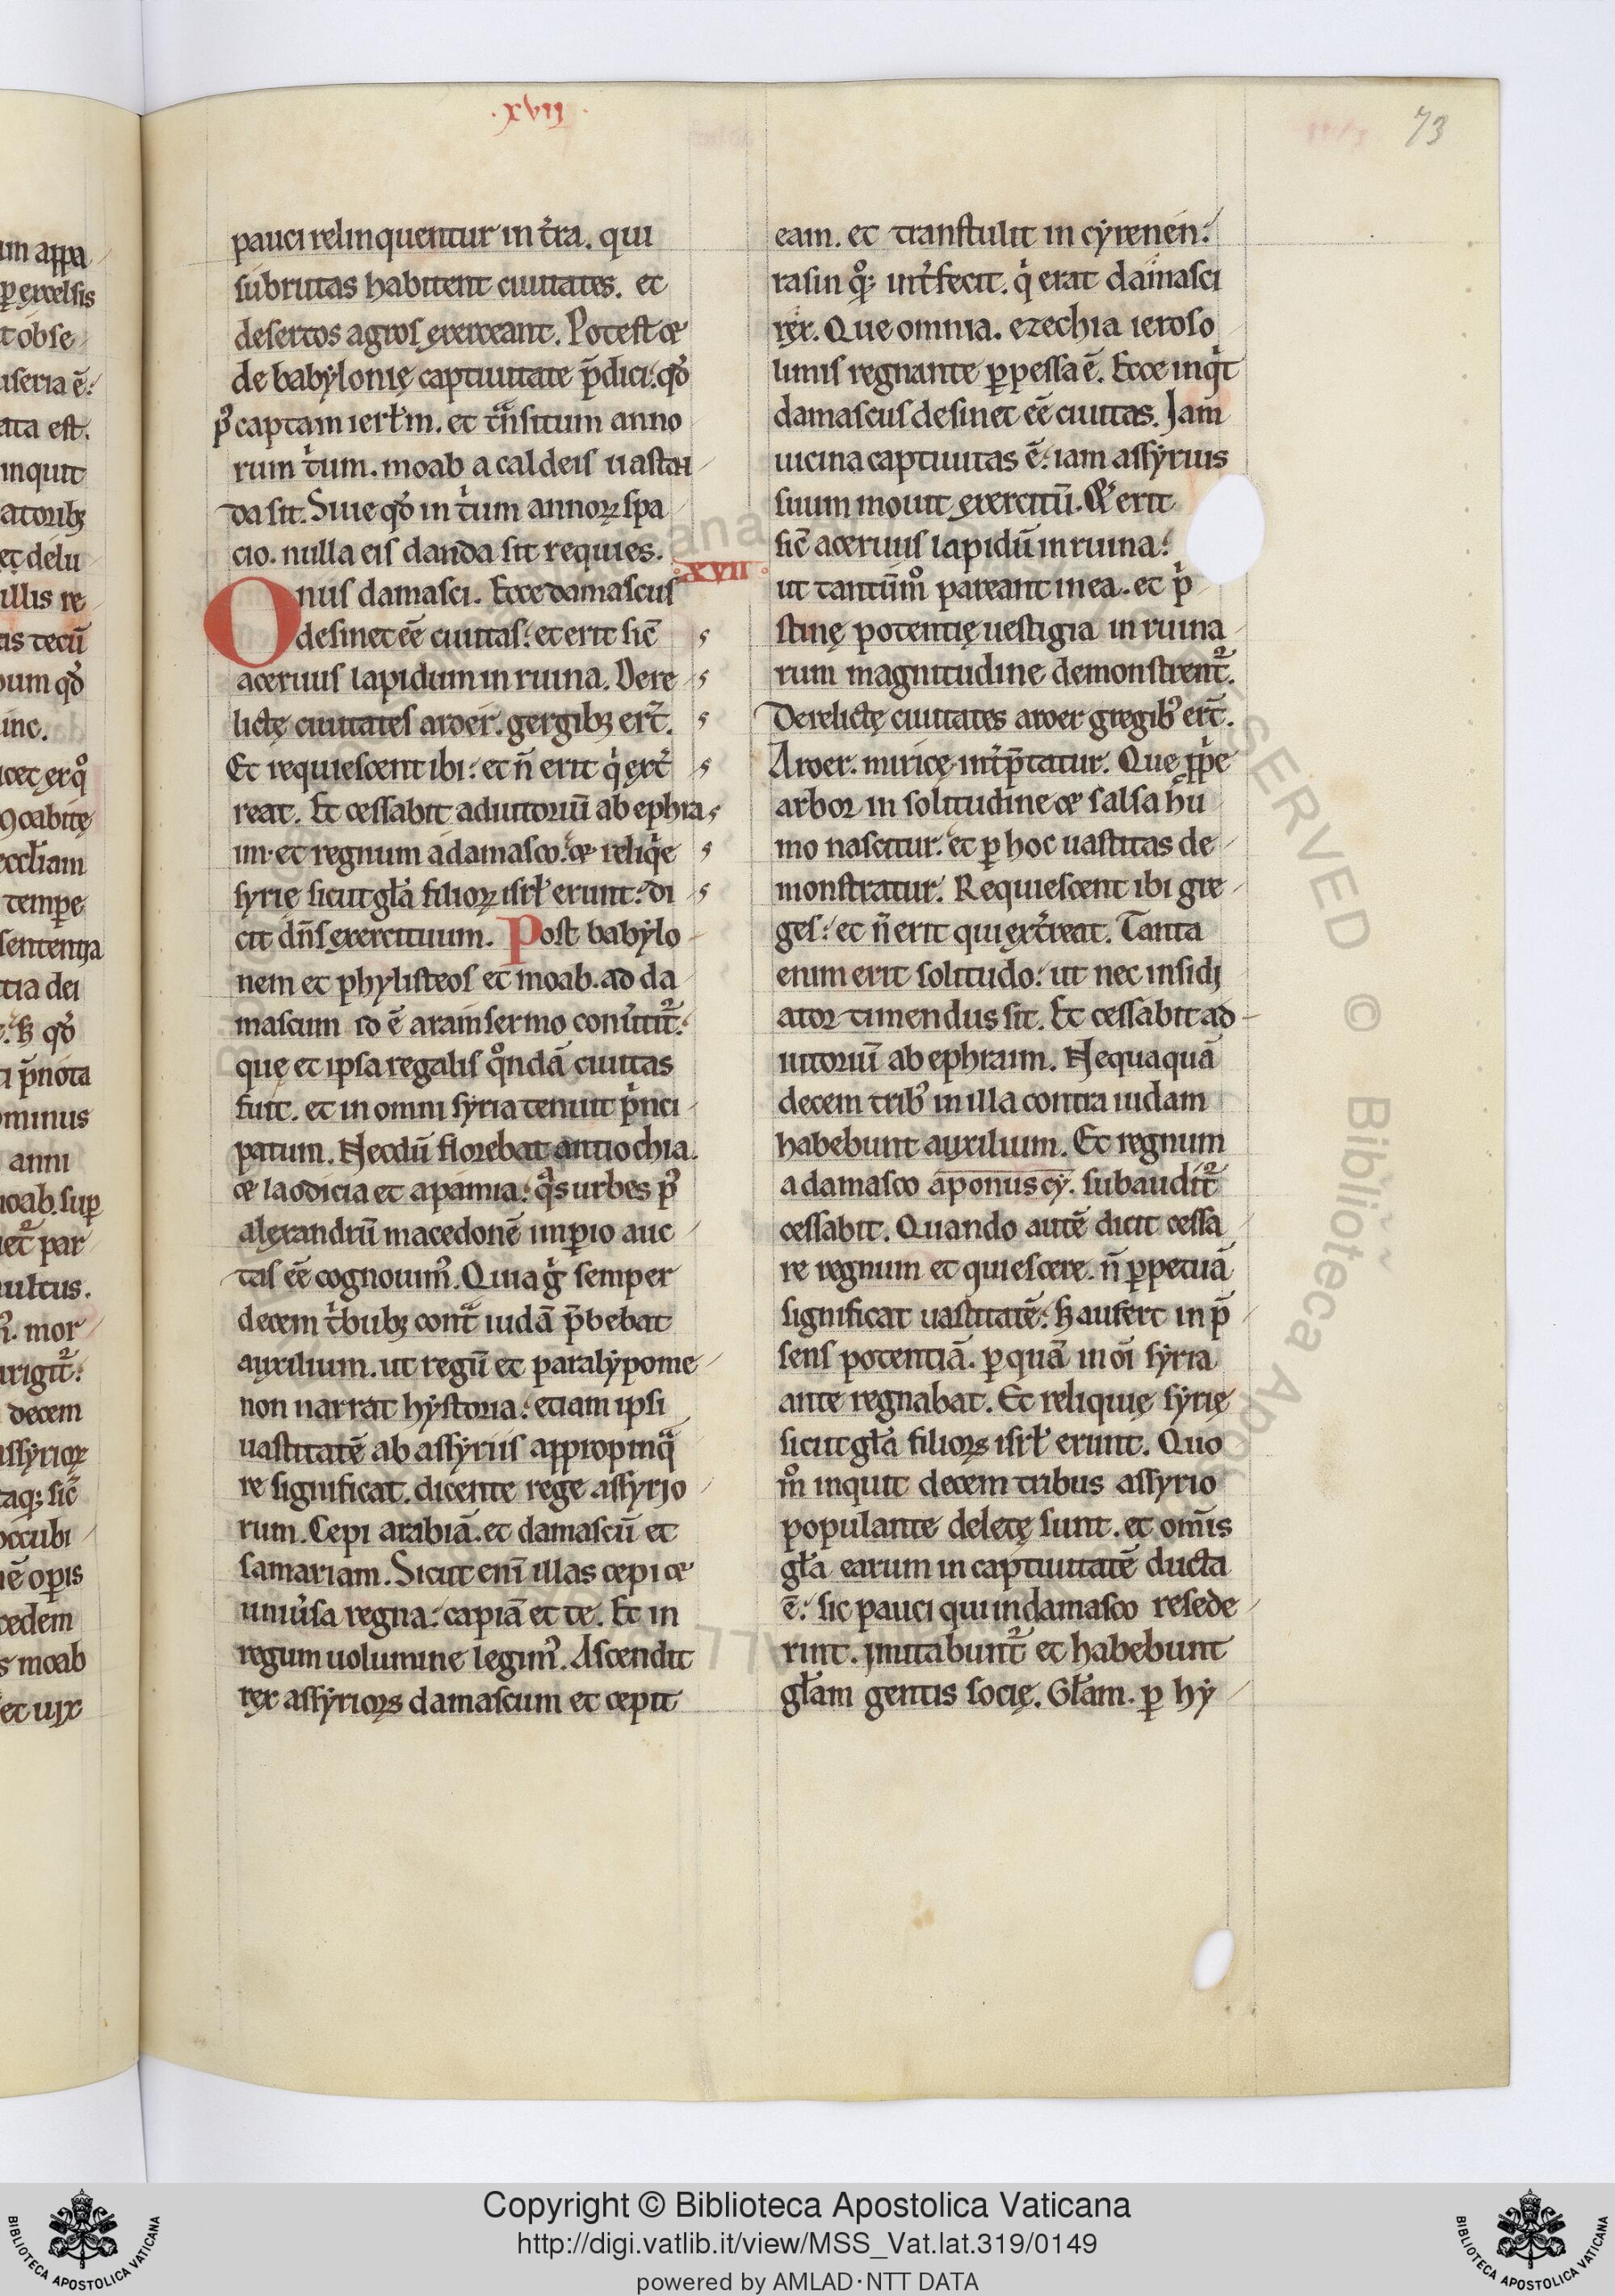 .xvii.
73
pauci relinquentur in t̓ra. qui
subrutas habitent ciuitates. et
desertos agros exerceant. Potest &
de babylonię captiuitate p̄dici: qd̓
p̓ captam ierłm. et tn̄situm anno
rum t̓um. moab a caldeis uastan
da sit. Siue qd̓ in t̓ium annoꝝ spa
cio. nulla eis danda sit requies.
.xvii.
Onus damasci. Ecce damascus
desinet eē ciuitas: et erit sic̄
aceruus lapidum in ruina. Dere
lictę ciuitates aroer. gergibꝫ ert̄.
Et requiescent ibi: et n̄ erit q̓ ext̓
reat. Et cessabit adiutoriū ab ephra
im. et regnum a damasco: & reliq̓e
syrię sicut gła filioꝝ isrł erunt: di
cit dn̄s exercituum. Post babylo
nem et phylisteos et moab. ad da
mascum id ē aram sermo conu̓tit̃:
quę et ipsa regalis qͦndā ciuitas
fuit. et in omni syria tenuit p̓nci
patum. Necdū florebat antiochia.
& laodicia et apamia: qᵃs urbes p̓
alexandrū macedonē imp̱io auc
tas eē cognouim̓. Quia g̓ semper
decem t̓bubꝫ contᵃ iudā p̄bebat
auxilium. ut regū et paralypome
non narrat hystoria: etiam ipsi
uastitatē ab assyriis appropinqᵃ
re significat. dicente rege assyrio
rum. Cepi arabiā. et damascū et
samariam. Sicut enī illas cepi &
uniu̓sa regna: capiā et te. Et in
regum uolumine legim̓. Ascendit
rex assyrioꝝ damascum et cepit
eam. et transtulit in cyrenen:
rasin qͦꝫ int̓fecit. q̓ erat damasci
rex. Que omnia. ezechia ieroso
limis regnante ꝑpessa ē. Ecce inq̓t
damascus desinet eē ciuitas. Iam
uicina captiuitas ē: iam assyrius
suum mouit exercitū. Et erit
sic̄ aceruus lapidū in ruina:
ut tantūmͦ pareant in ea. et p̓
stinę potentię uestigia in ruina
rum magnitudine demonstrent̃.
Derelictę ciuitates aroer gregib̓ ert̄.
Aroer. miricę int̓p̄tatur. Que ꝓp̓e
arbor in solitudine & salsa hu
mo nascitur: et ꝑ hoc uastitas de
monstratur. Requiescent ibi gre
ges: et n̄ erit qui ext̓reat. Tanta
enim erit solitudo: ut nec insidi
ator timendus sit. Et cessabit ad
iutoriū ab ephraim. Nequaquā
decem trib̓ in illa contra iudam
habebunt auxilium. Et regnum
a damasco aponuscy. subaudit̃
cessabit. Quando autē dicit cessa
re regnum et quiescere. n̄ ꝑpetuā
significat uastitatē: ꝫ aufert in p̄
sens potentiā. ꝑ quā in oī syria
ante regnabat. Et reliquię syrię
sicut gła filioꝝ isrł erunt. Quo
mͦ inquit decem tribus assyrio
populante deletę sunt. et om̄is
gła earum in captiuitatē ducta
ē: sic pauci qui in damasco resede
rint. imitabunt̃ et habebunt
głam gentis socię. Głam. ꝑ hy
Copyright © Biblioteca Apostolica Vaticana
http://digi.vatlib.it/view/MSS_Vat.lat.319/0149
powered by AMLAD·NTT DATA
BIBLIOTECA APOSTOLICA VATICANA
BIBLIOTECA APOSTOLICA VATICANA